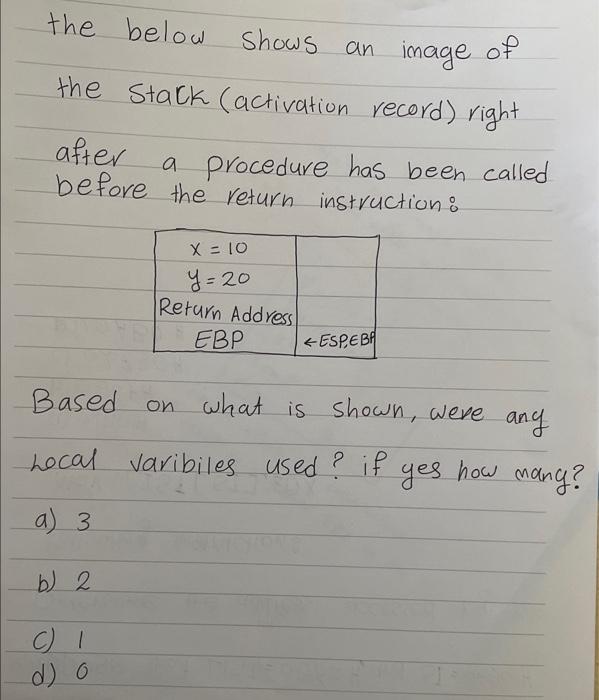 the below shows an image of
the Stack (activation record) right
after a procedure has been called
before the return instruction:
x = 10
y = 20
Return Address
EBP ←ESP,EBP
Based on what is shown, were any
Local varibiles used? if yes how many?
a) 3
b) 2
c) 1
d) 0